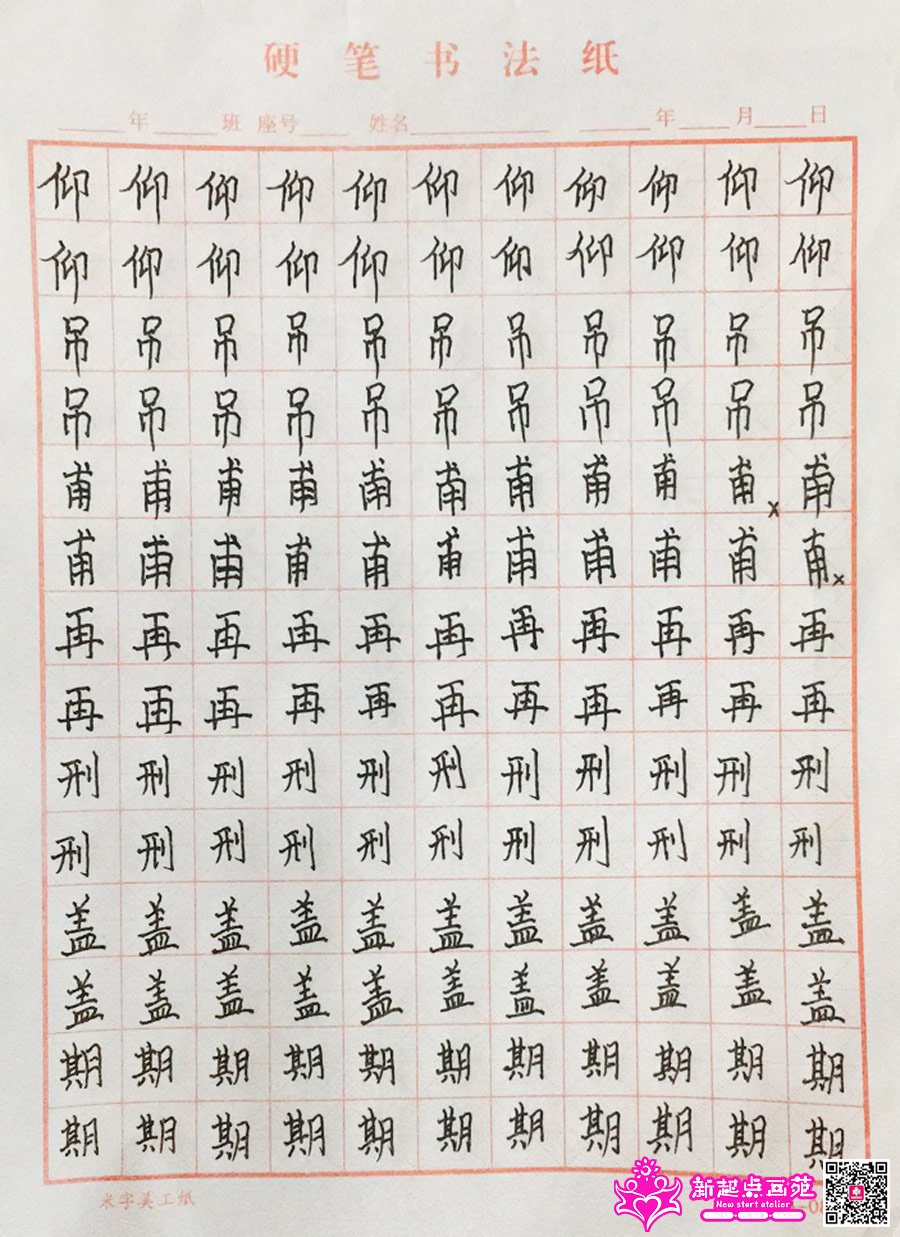 硬笔书法纸
年 班 座号 姓名 年 月 日
仰仰仰仰仰仰仰仰仰仰仰
仰仰仰仰仰仰仰仰仰仰仰
吊吊吊吊吊吊吊吊吊吊吊
吊吊吊吊吊吊吊吊吊吊吊
甫甫甫甫甫甫甫甫甫甫x甫
甫甫甫甫甫甫甫甫甫甫甫x
再再再再再再再再再再再
再再再再再再再再再再再
刑刑刑刑刑刑刑刑刑刑刑
刑刑刑刑刑刑刑刑刑刑刑
盖盖盖盖盖盖盖盖盖盖盖
盖盖盖盖盖盖盖盖盖盖盖
期期期期期期期期期期期
期期期期期期期期期期期
米字美工纸
新起点画苑
New start artery